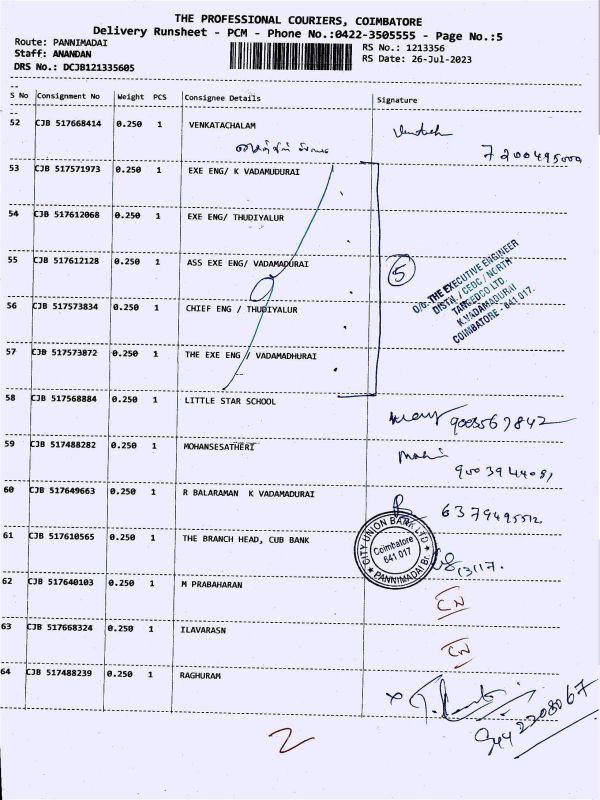 THE PROFESSIONAL COURIERS, COIMBATORE
Delivery Runsheet - PCM - Phone No.:0422-3505555 - Page No.:5
Route: PANNIMADAI
RS No.: 1213356
Staff: ANANDAN
RS Date: 26-Jul-2023
DRS No.: DCJB121335605
S No Consignment No Weight PCS Consignee Details Signature
52 CJB 517668414 0.250 1 VENKATACHALAM
7200495000
53 CJB 517571973 0.250 1 EXE ENG/ K VADAMUDURAI
54 CJB 517612068 0.250 1 EXE ENG/ THUDIYALUR
55 CJB 517612128 0.250 1 ASS EXE ENG/ VADAMADURAI
5
O/O. THE EXECUTIVE ENGINEER
DISTN. / CEDC / NORTH
TANGEDCO LTD
K.VADAMADURAI
COIMBATORE - 641 017.
56 CJB 517573834 0.250 1 CHIEF ENG / THUDIYALUR
57 CJB 517573872 0.250 1 THE EXE ENG / VADAMADHURAI
58 CJB 517568884 0.250 1 LITTLE STAR SCHOOL
9003567842
59 CJB 517488282 0.250 1 MOHANSESATHERI
9003944081
60 CJB 517649663 0.250 1 R BALARAMAN K VADAMADURAI
6379495512
61 CJB 517610565 0.250 1 THE BRANCH HEAD, CUB BANK
CITY UNION BANK LTD
Coimbatore
641 017
PANNIMADAI Br.
62 CJB 517640103 0.250 1 M PRABAHARAN
CN
63 CJB 517668324 0.250 1 ILAVARASN
CN
64 CJB 517488239 0.250 1 RAGHURAM
9442208067
2